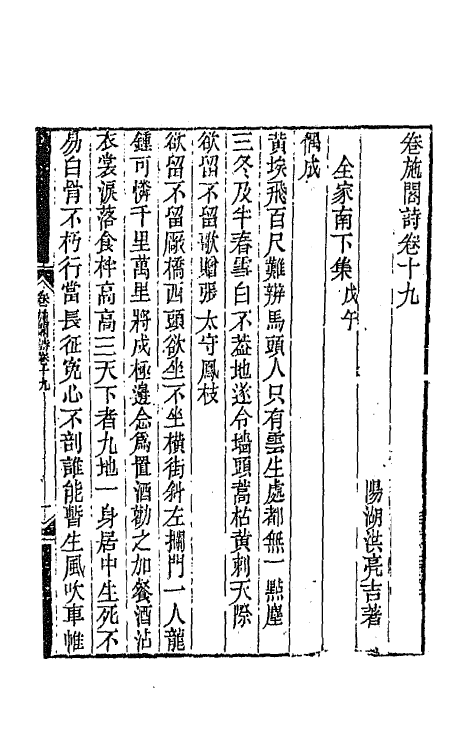 卷施閣詩卷十九
陽湖洪亮吉著
全家南下集戊午
偶成
黃埃飛百尺難辨馬頭人只有雲生處都無一點塵
三冬及半春雪白不蓋地遂令墻頭蒿枯黃刺天際
欲留不留歌贈張太守鳳枝
欲留不留厰橋西頭欲坐不坐橫街斜左攔門一人龍
鍾可憐千里萬里將戍極邊念爲置酒勸之加餐酒沾
衣裳淚落食柈高高三天下者九地一身居中生死不
易白骨不朽行當長征寃心不剖誰能暫生風吹車帷
卷施閣詩卷十九
一